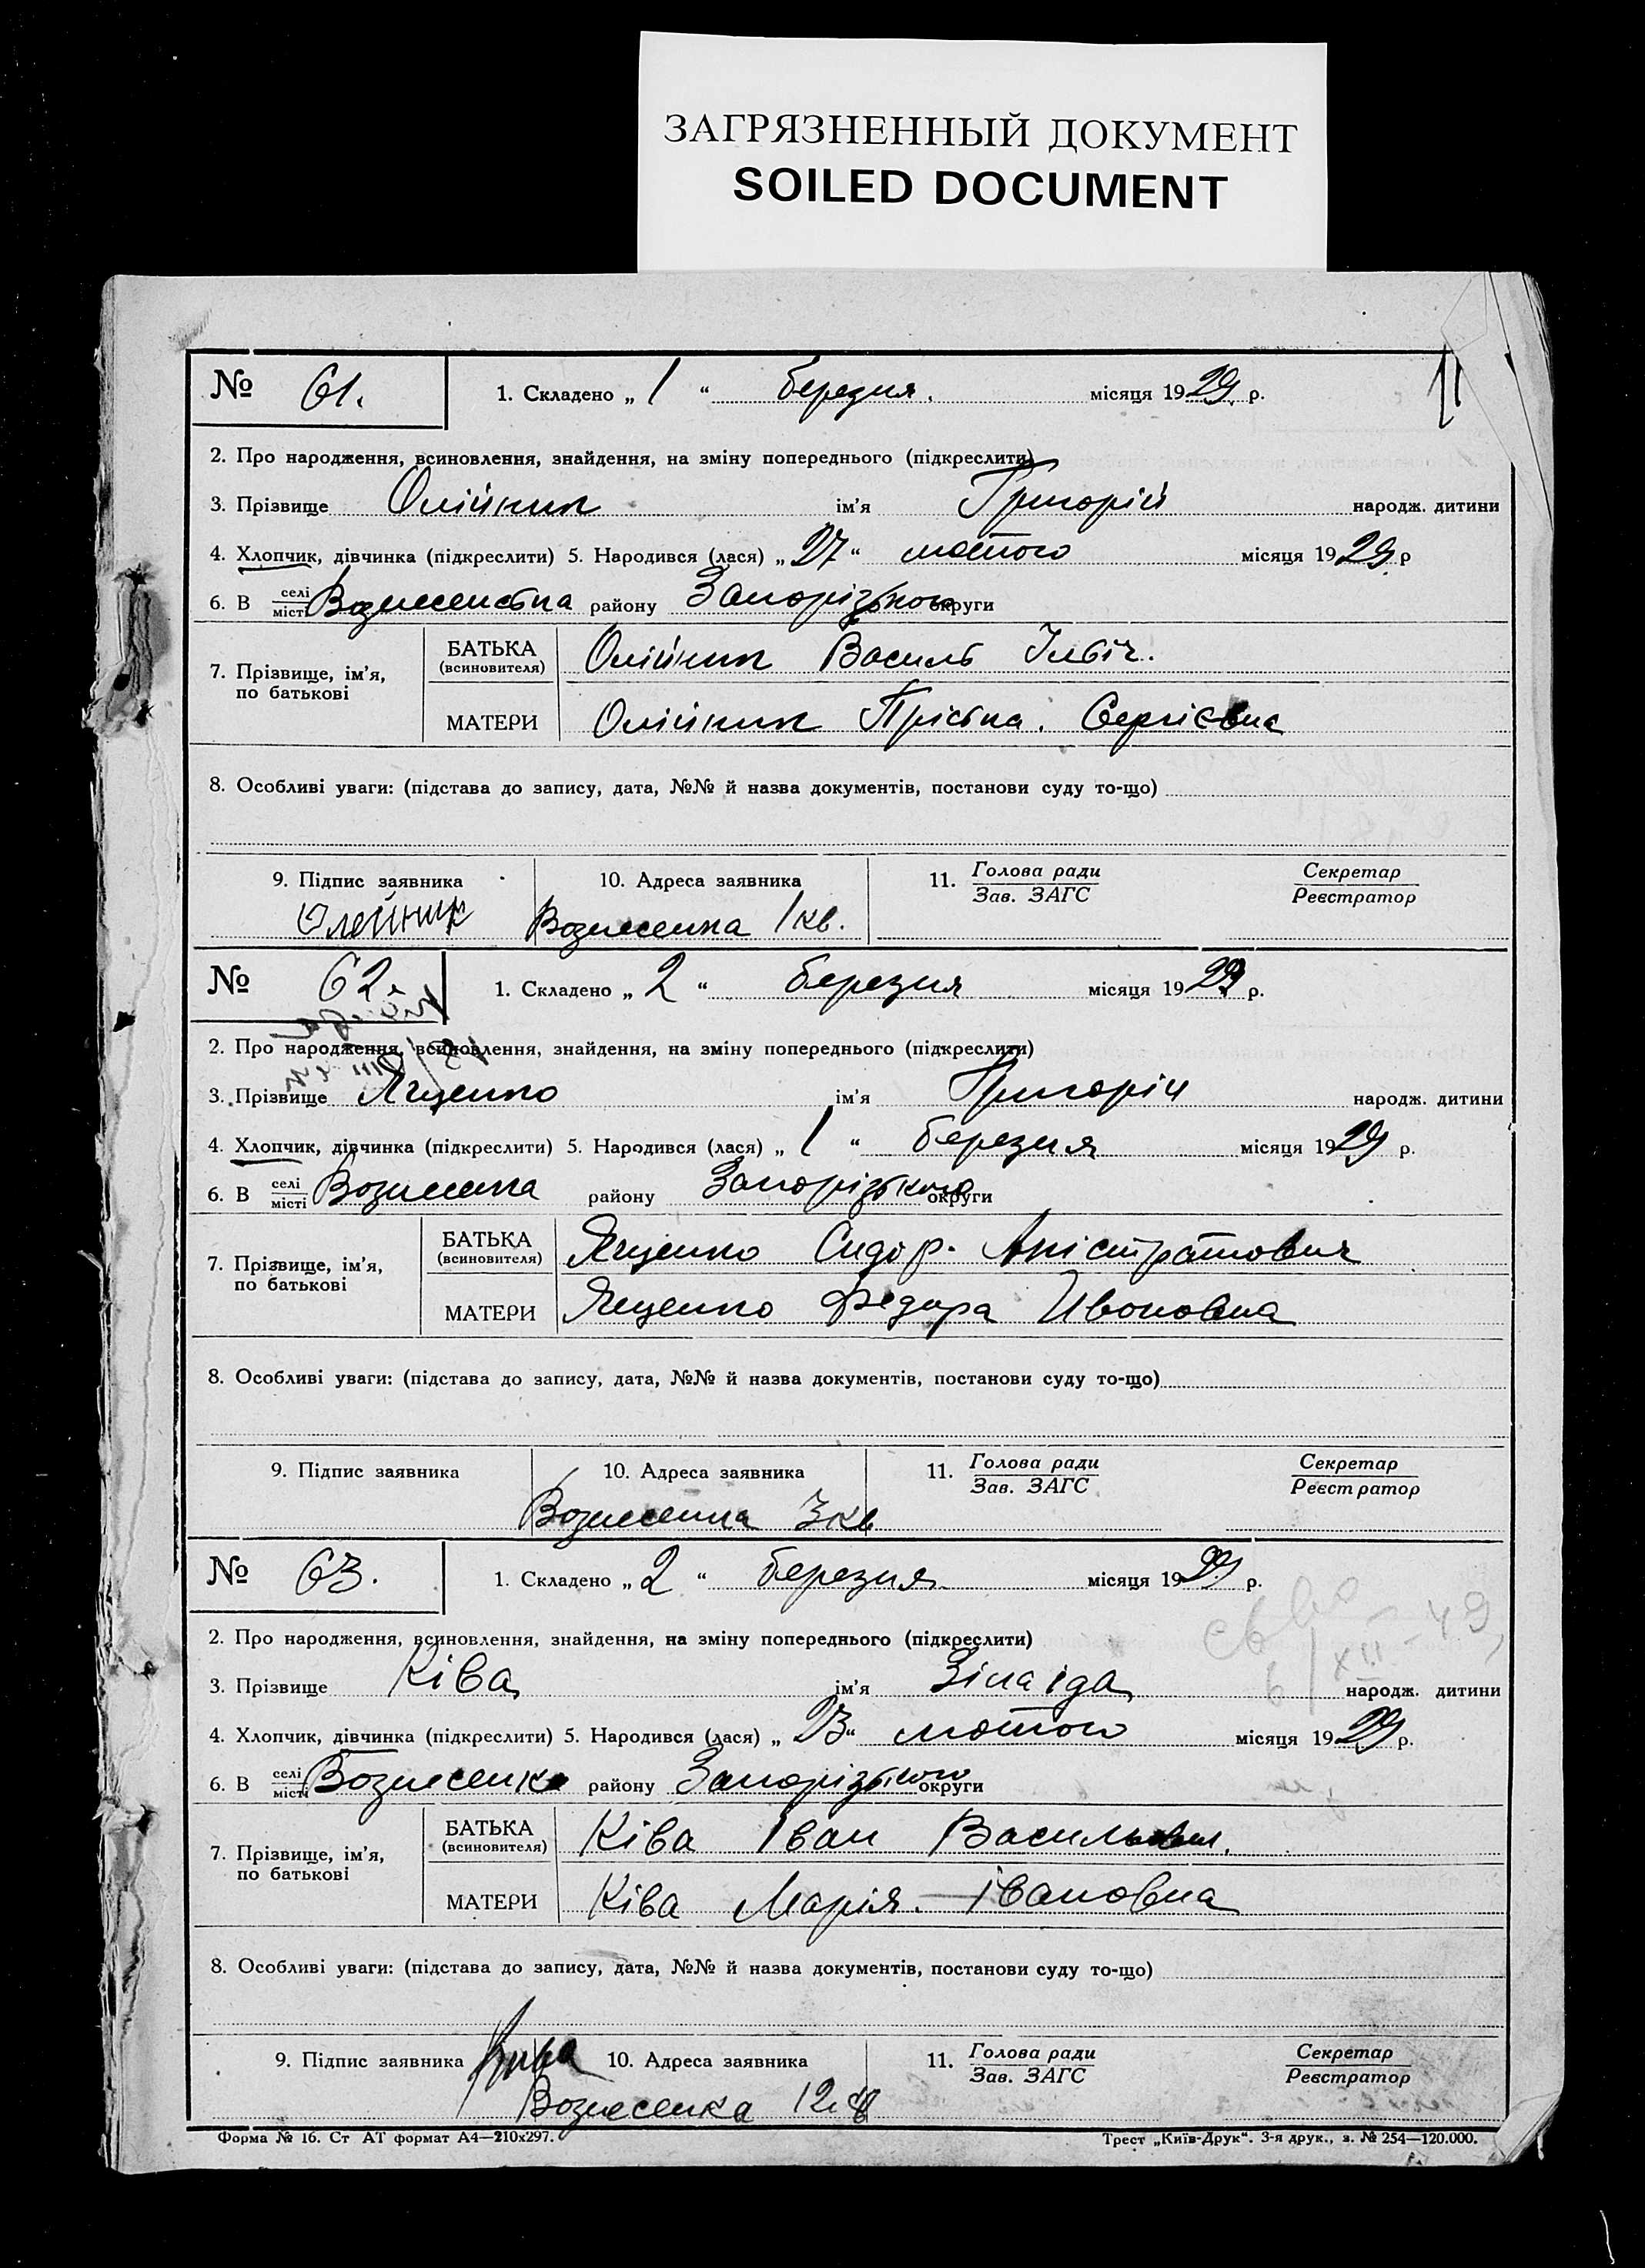 ЗАГРЯЗНЕННЫЙ ДОКУМЕНТ
SOILED DOCUMENT
№ 61. 1. Складено „ 1 “ березня. місяця 1929 р.
2. Про народження, всиновлення, знайдення, на зміну попереднього (підкреслити)
3. Прізвище Олійник ім'я Григорій народж. дитини
4. Хлопчик, дівчинка (підкреслити) 5. Народився (лася) „ 27 “ лютого місяця 1929 р
6. В селі місті Вознесенська району Запорізького округи
7. Прізвище, ім'я, по батькові
БАТЬКА (всиновителя) Олійник Василь Ільіч.
МАТЕРИ Олійник Пріська. Сергієвна
8. Особливі уваги: (підстава до запису, дата, №№ й назва документів, постанови суду то-що)
9. Підпис заявника 10. Адреса заявника 11. Голова ради Зав. ЗАГС Секретар Реєстратор
Олейник Вознесенка 1 кв.
№ 62. 1. Складено „ 2 “ березня місяця 1929 р.
2. Про народження, всиновлення, знайдення, на зміну попереднього (підкреслити)
3. Прізвище Яценко ім'я Григорій народж. дитини
4. Хлопчик, дівчинка (підкреслити) 5. Народився (лася) „ 1 “ березня місяця 1929 р.
6. В селі місті Вознесенка району Запорізького округи
7. Прізвище, ім'я, по батькові
БАТЬКА (всиновителя) Яценко Сидор. Апістратович
МАТЕРИ Яценко Федора Ивановна
8. Особливі уваги: (підстава до запису, дата, №№ й назва документів, постанови суду то-що)
9. Підпис заявника 10. Адреса заявника 11. Голова ради Зав. ЗАГС Секретар Реєстратор
Вознесенка 3 кв
№ 63. 1. Складено „ 2 “ березня. місяця 1929 р.
2. Про народження, всиновлення, знайдення, на зміну попереднього (підкреслити)
3. Прізвище Ківа ім'я Зінаіда народж. дитини
4. Хлопчик, дівчинка (підкреслити) 5. Народився (лася) „ 23 “ лютого місяця 1929 р.
6. В селі місті Вознесенка району Запорізького округи
7. Прізвище, ім'я, по батькові
БАТЬКА (всиновителя) Ківа Іван Васильович.
МАТЕРИ Ківа Марія. Івановна
8. Особливі уваги: (підстава до запису, дата, №№ й назва документів, постанови суду то-що)
9. Підпис заявника Кива 10. Адреса заявника 11. Голова ради Зав. ЗАГС Секретар Реєстратор
Вознесенка 12 кв
Форма № 16. Ст АТ формат А4—210x297. Трест „Київ-Друк“. 3-я друк., з. № 254—120.000.